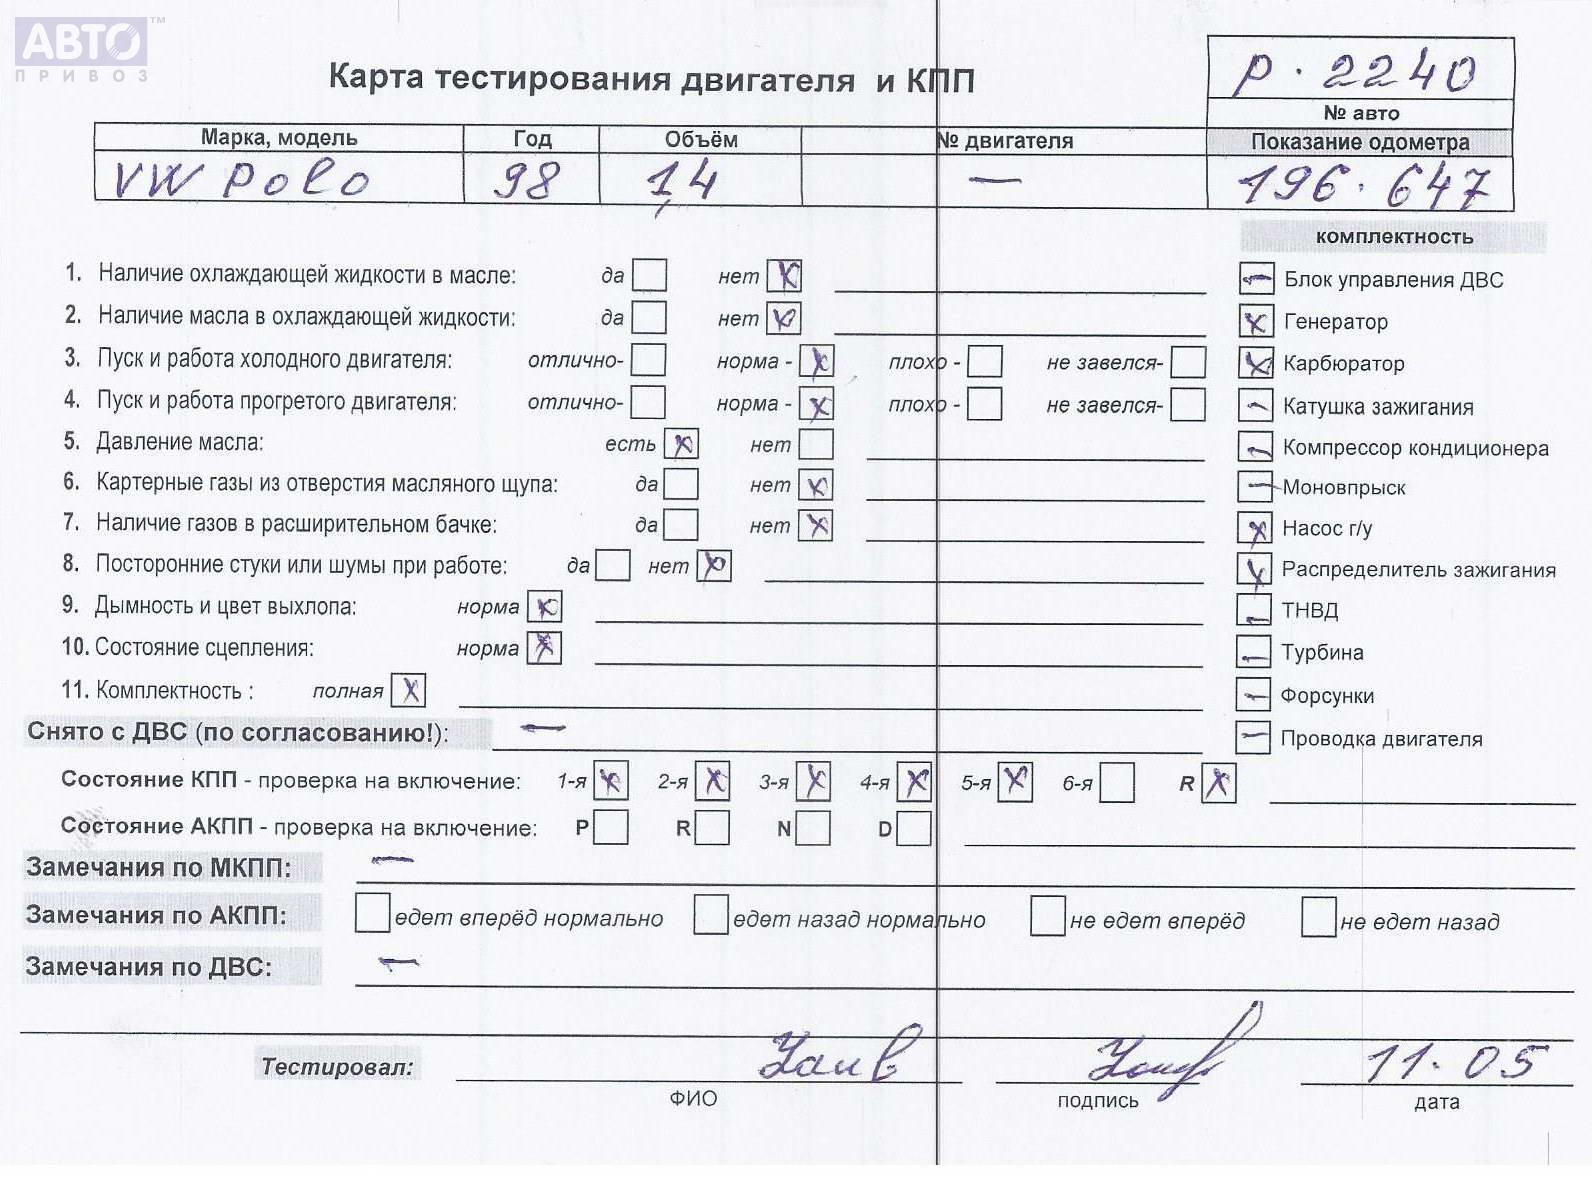 АВТО™
ПРИВОЗ
Карта тестирования двигателя и КПП
р. 2240
№ авто
Марка, модель Год Объём № двигателя Показание одометра
VW Polo 98 1,4 — 196.647
комплектность
1. Наличие охлаждающей жидкости в масле: да нет x
2. Наличие масла в охлаждающей жидкости: да нет x
3. Пуск и работа холодного двигателя: отлично- норма - x плохо - не завелся-
4. Пуск и работа прогретого двигателя: отлично- норма - x плохо - не завелся-
5. Давление масла: есть x нет
6. Картерные газы из отверстия масляного щупа: да нет x
7. Наличие газов в расширительном бачке: да нет x
8. Посторонние стуки или шумы при работе: да нет x
9. Дымность и цвет выхлопа: норма x
10. Состояние сцепления: норма x
11. Комплектность : полная x
— Блок управления ДВС
x Генератор
x Карбюратор
— Катушка зажигания
— Компрессор кондиционера
— Моновпрыск
x Насос г/у
x Распределитель зажигания
— ТНВД
— Турбина
— Форсунки
— Проводка двигателя
Снято с ДВС (по согласованию!): —
Состояние КПП - проверка на включение: 1-я x 2-я x 3-я x 4-я x 5-я x 6-я R x
Состояние АКПП - проверка на включение: P R N D
Замечания по МКПП: —
Замечания по АКПП: едет вперёд нормально едет назад нормально не едет вперёд не едет назад
Замечания по ДВС: —
Тестировал: 11.05
ФИО подпись дата